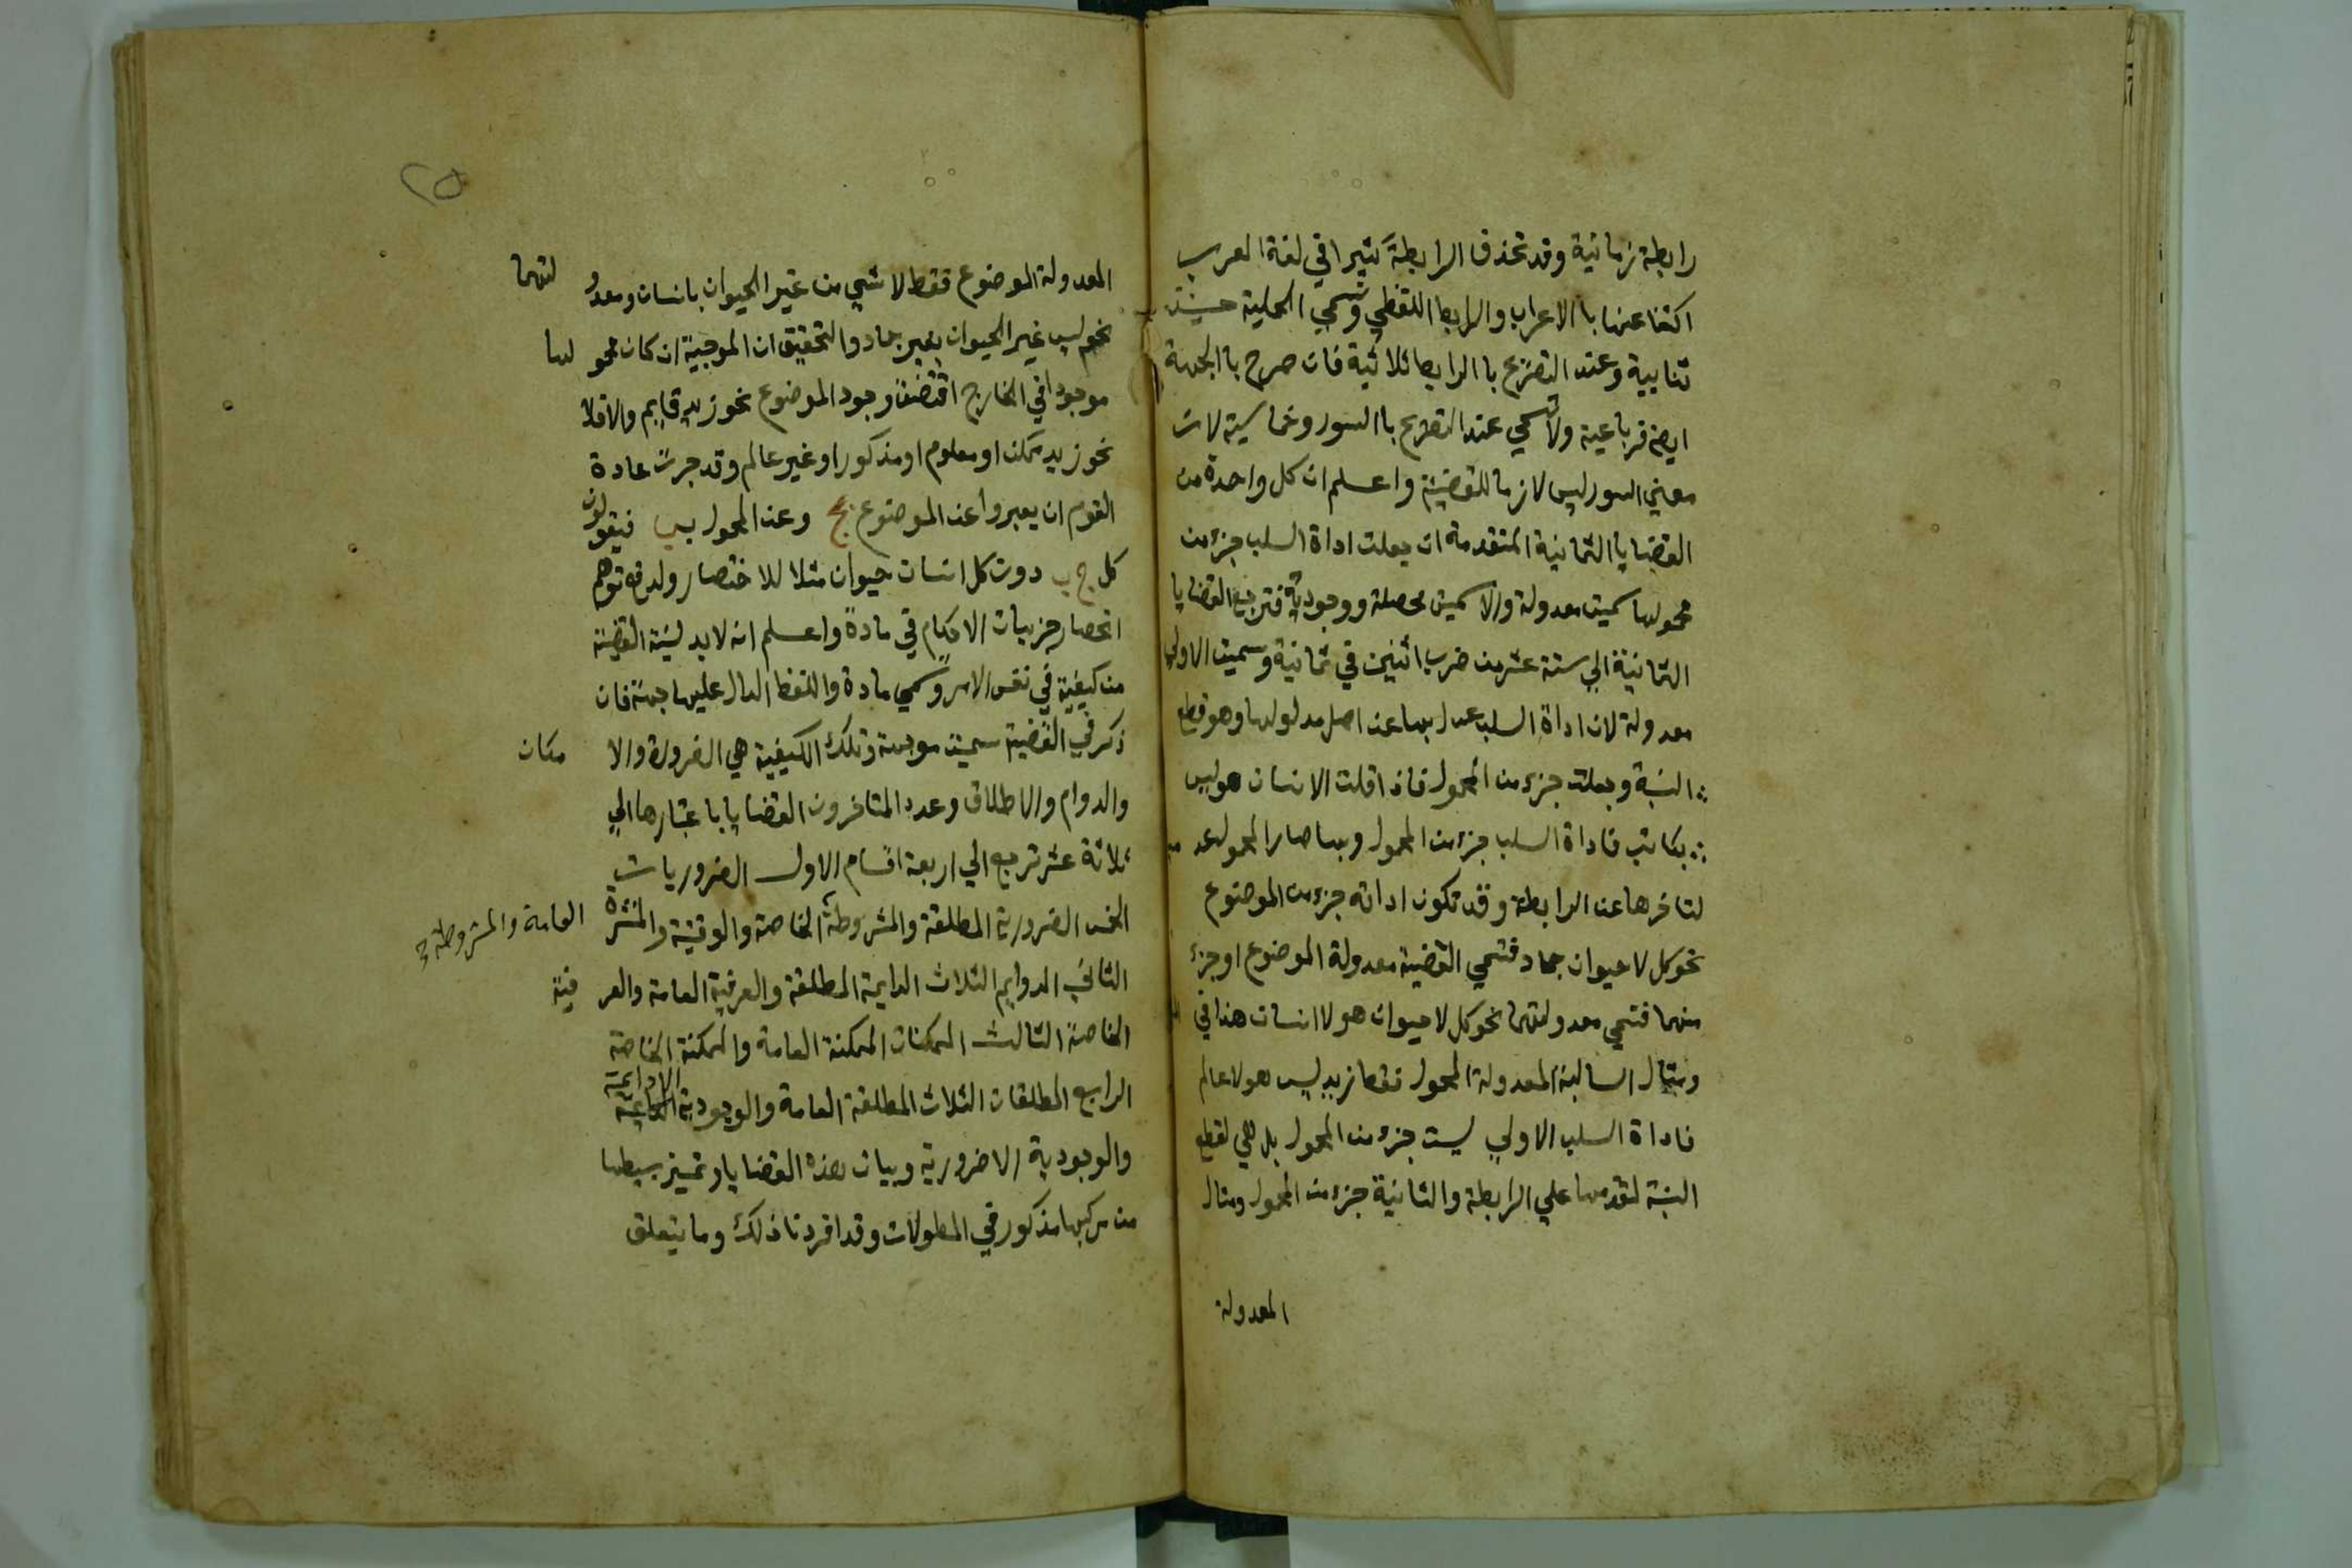 رابطة زمانية وقد تحذف الرابطة كثيرا في لغة العرب
اكتفا عنها با الاعراب والرابط اللفظي وتسمي الحملية حينئذ
ثنايية وعند التصريح با الرابط ثلاثية فان صرح با الجهة
ايضا فرباعية ولا تسمي عند التصريح با السور وخماسية لان
معني السور ليس لازما للقضية واعلم ان كل واحدة من
القضايا الثمانية المتقدمة ان جعلت اداة السلب جزء من
محمولها سميت معدولة والا سميت محصلة ووجودية فترجع القضايا
الثمانية الي ستة عشر من ضرب اثنين في ثمانية وسميت الاولي
معدولة لان اداة السلب عدل بها عن اصل مدلولها وهو قطع
النسبة وجعلت جزء من المحمول فاذا قلت الانسان هو ليس
بكاتب فاداة السلب جزء من المحمول وبها صار المحمول عد
لتاخرها عن الرابطة وقد تكون اداته جزء من الموضوع
نحو كل لا حيوان جماد فتسمي القضية معدولة الموضوع او جزء
منهما فتسمي معدولتهما نحو كل لا حيوان هو لا انسان هذا في
ومثال السالبة المعدولة المحمول فقط زيد ليس هو لا عالم
فاداة السلب الاولي ليست جزء من المحمول بل هي لقطع
النسبة لتقدمها علي الرابطة والثانية جزء من المحمول ومثال
المعدولة
٢٥
المعدولة الموضوع فقط لا شيي من غير الحيوان بانسان ومعدو لتهما
نحو ليس غير الحيوان بغير جماد والتحقيق ان الموجبة ان كان محمو لها
موجودا في الخارج اقتضت وجود الموضوع نحو زيد قايم والا فلا
نحو زيد ممكن او معلوم او مذكور او غير عالم وقد جرت عادة
القوم ان يعبروا عن الموضوع بج وعن المحمول بب فيقولون
كل ج ب دون كل انسان حيوان مثلا للاختصار ولدفع توهم
انحصار جزييات الاحكام في مادة واعلم انه لا بد لنسبة القضية
من كيفية في نفس الامر وتسمي مادة واللفظ الدال عليها جهة فان
ذكر في القضية سميت موجهة وتلك الكيفية هي الضرورة والا مكان
والدوام والاطلاق وعدد المتاخرون القضايا باعتبارها الي
ثلاثة عشر ترجع الي اربعة اقسام الاول الضروريات
الخمس الضرورية المطلقة والمشروطة الخاصة والوقتية والمنتشرة
العامة والمشروطة
الثاني الدوايم الثلاث الدايمة المطلقة والعرفية العامة والعر فية
الخاصة الثالث الممكنات الممكنة العامة والممكنة الخاصة
الرابع المطلقات الثلاث المطلقة العامة والوجودية اللادايمة
والوجودية الاضرورية وبيان هذه القضايا وتمييز بسيطها
من مركبها مذكور في المطولات وقد افردنا ذلك وما يتعلق